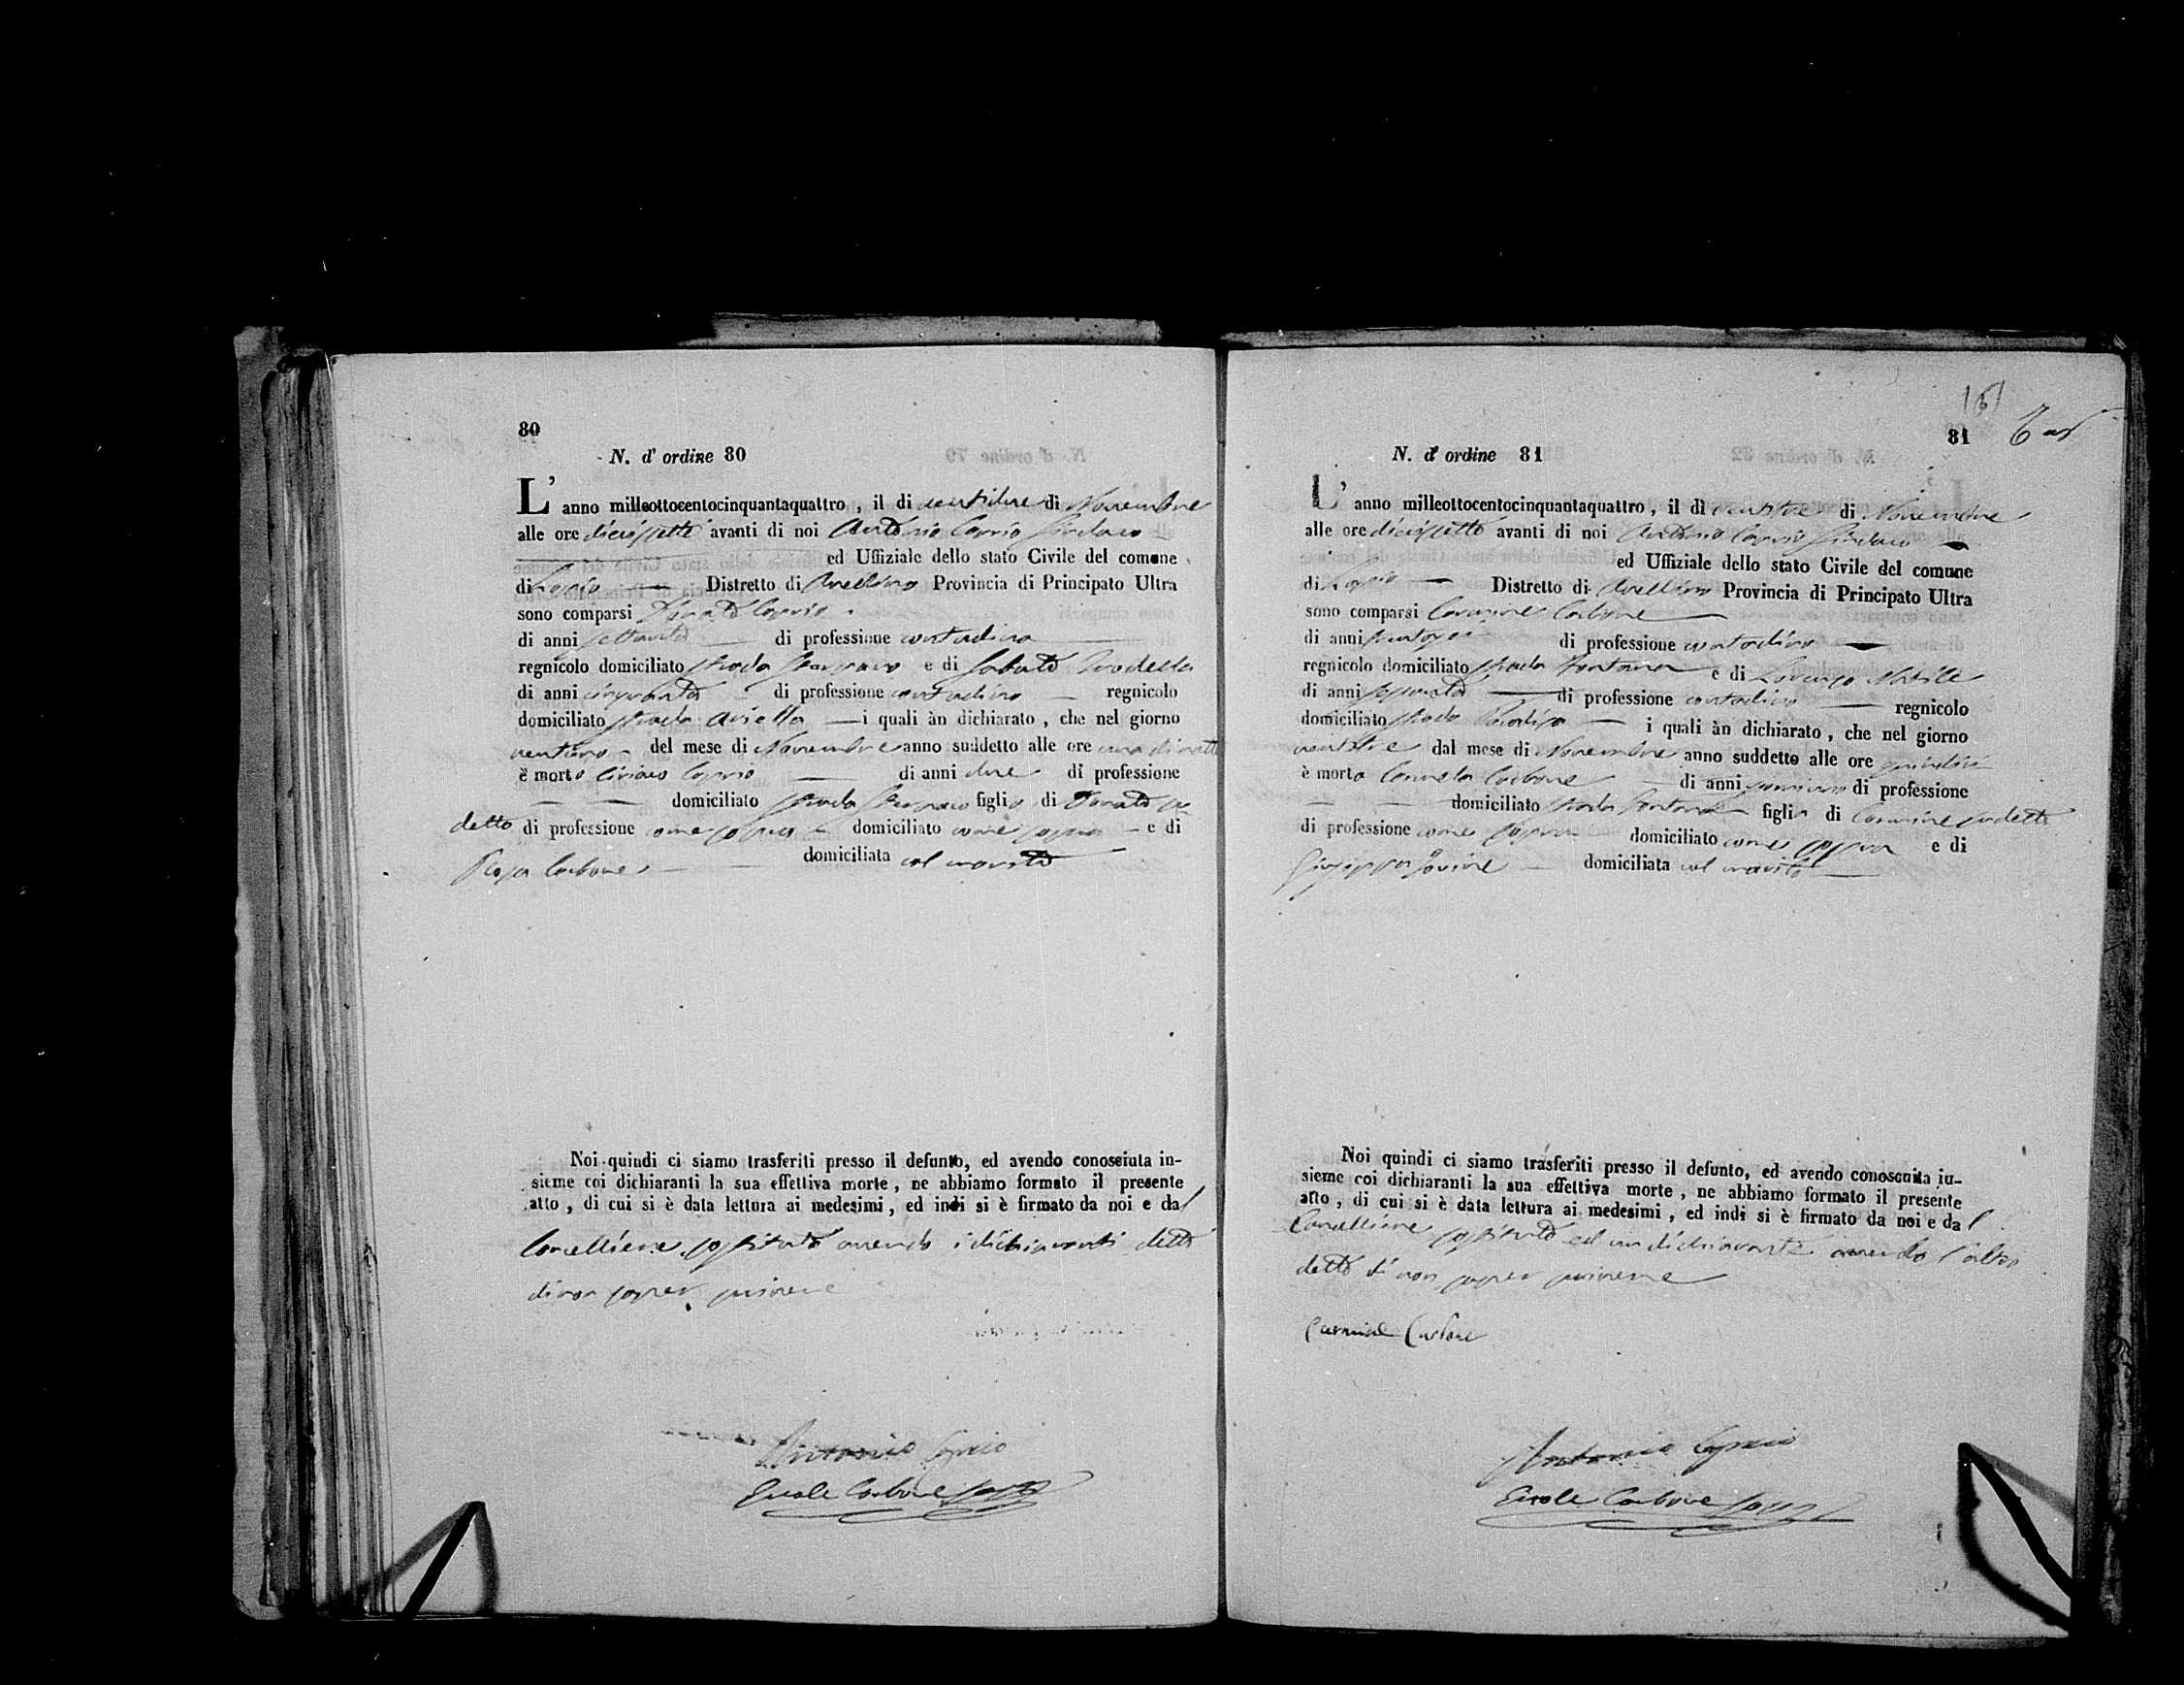 80
N. d' ordine 80
L' anno milleottocentocinquantaquattro, il di ventidue di Novembre
alle ore diciassette avanti di noi Antonio Caprio Sindaco
ed Uffiziale dello stato Civile del comune
di Distretto di Avellino Provincia di Principato Ultra
sono comparsi Donato Caprio
di anni settanta di professione contadino
regnicolo domiciliato strada e di Sabato
di anni cinquanta di professione contadino regnicolo
domiciliato strada i quali àn dichiarato, che nel giorno
ventuno del mese di Novembre anno suddetto alle ore una di notte
è morto Ciriaco Caprio di anni due di professione
domiciliato strada figlio di Donato su
detto di professione come sopra domiciliato come sopra e di
Rosa Carbone domiciliata col marito
Noi quindi ci siamo trasferiti presso il defunto, ed avendo conosciuta in-
sieme coi dichiaranti la sua effettiva morte, ne abbiamo formato il presente
atto, di cui si è data lettura ai medesimi, ed indi si è firmato da noi e dal
Cancelliere sostituto avendo i dichiaranti detto
di non saper scrivere
Antonio Caprio
Ercole Carbone
81
N. d' ordine 81
L' anno milleottocentocinquantaquattro, il di ventitre di Novembre
alle ore diciassette avanti di noi Antonio Caprio Sindaco
ed Uffiziale dello stato Civile del comune
di Distretto di Avellino Provincia di Principato Ultra
sono comparsi Carmine Carbone
di anni di professione contadino
regnicolo domiciliato strada Fontana e di Lorenzo
di anni sessanta di professione contadino regnicolo
domiciliato strada i quali àn dichiarato, che nel giorno
ventitre dal mese di Novembre anno suddetto alle ore quindici
è morta Carmela Carbone di anni di professione
domiciliato strada Fontana figlia di Carmine sudetto
di professione come sopra domiciliato come sopra e di
Giuseppa Iovine domiciliata col marito
Noi quindi ci siamo trasferiti presso il defunto, ed avendo conosciuta in-
sieme coi dichiaranti la sua effettiva morte, ne abbiamo formato il presente
atto, di cui si è data lettura ai medesimi, ed indi si è firmato da noi e dal
Cancelliere sostituto ed un dichiarante avendo l'altro
detto di non saper scrivere
Carmine Carbone
Antonio Caprio
Ercole Carbone